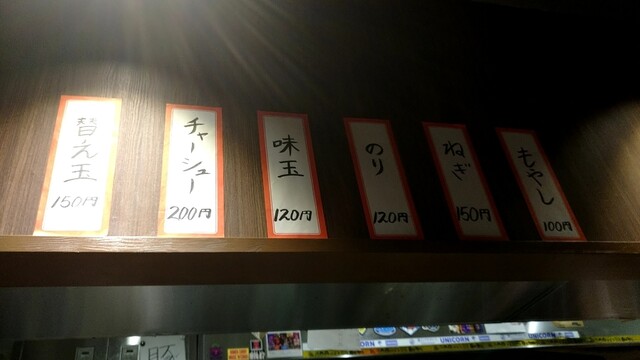 替え玉
150円
チャーシュー
200円
味玉
120円
のり
120円
ねぎ
150円
もやし
100円
UNICORN
UNICORN